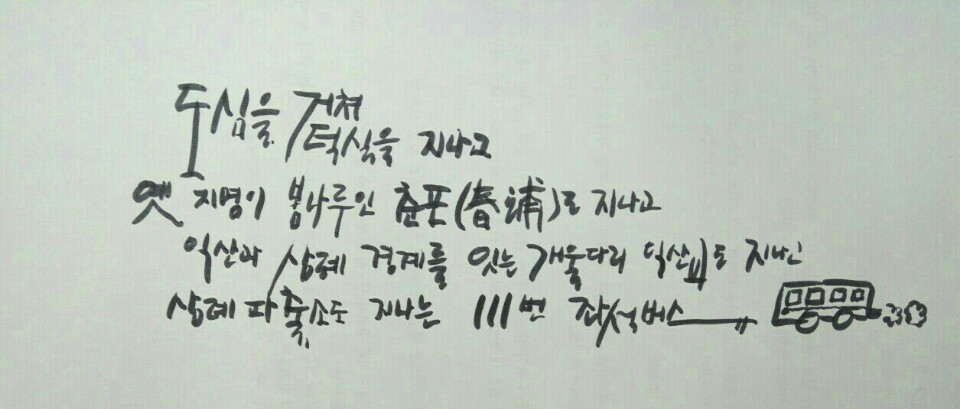 도심을 거쳐
지나고
옛 지명이 봄나루인 춘포(春浦)도 지나고
익산과 삼례 경계를 잇는 개울다리 익산교도 지나고
삼례 파출소도 지나는 111번 좌석버스